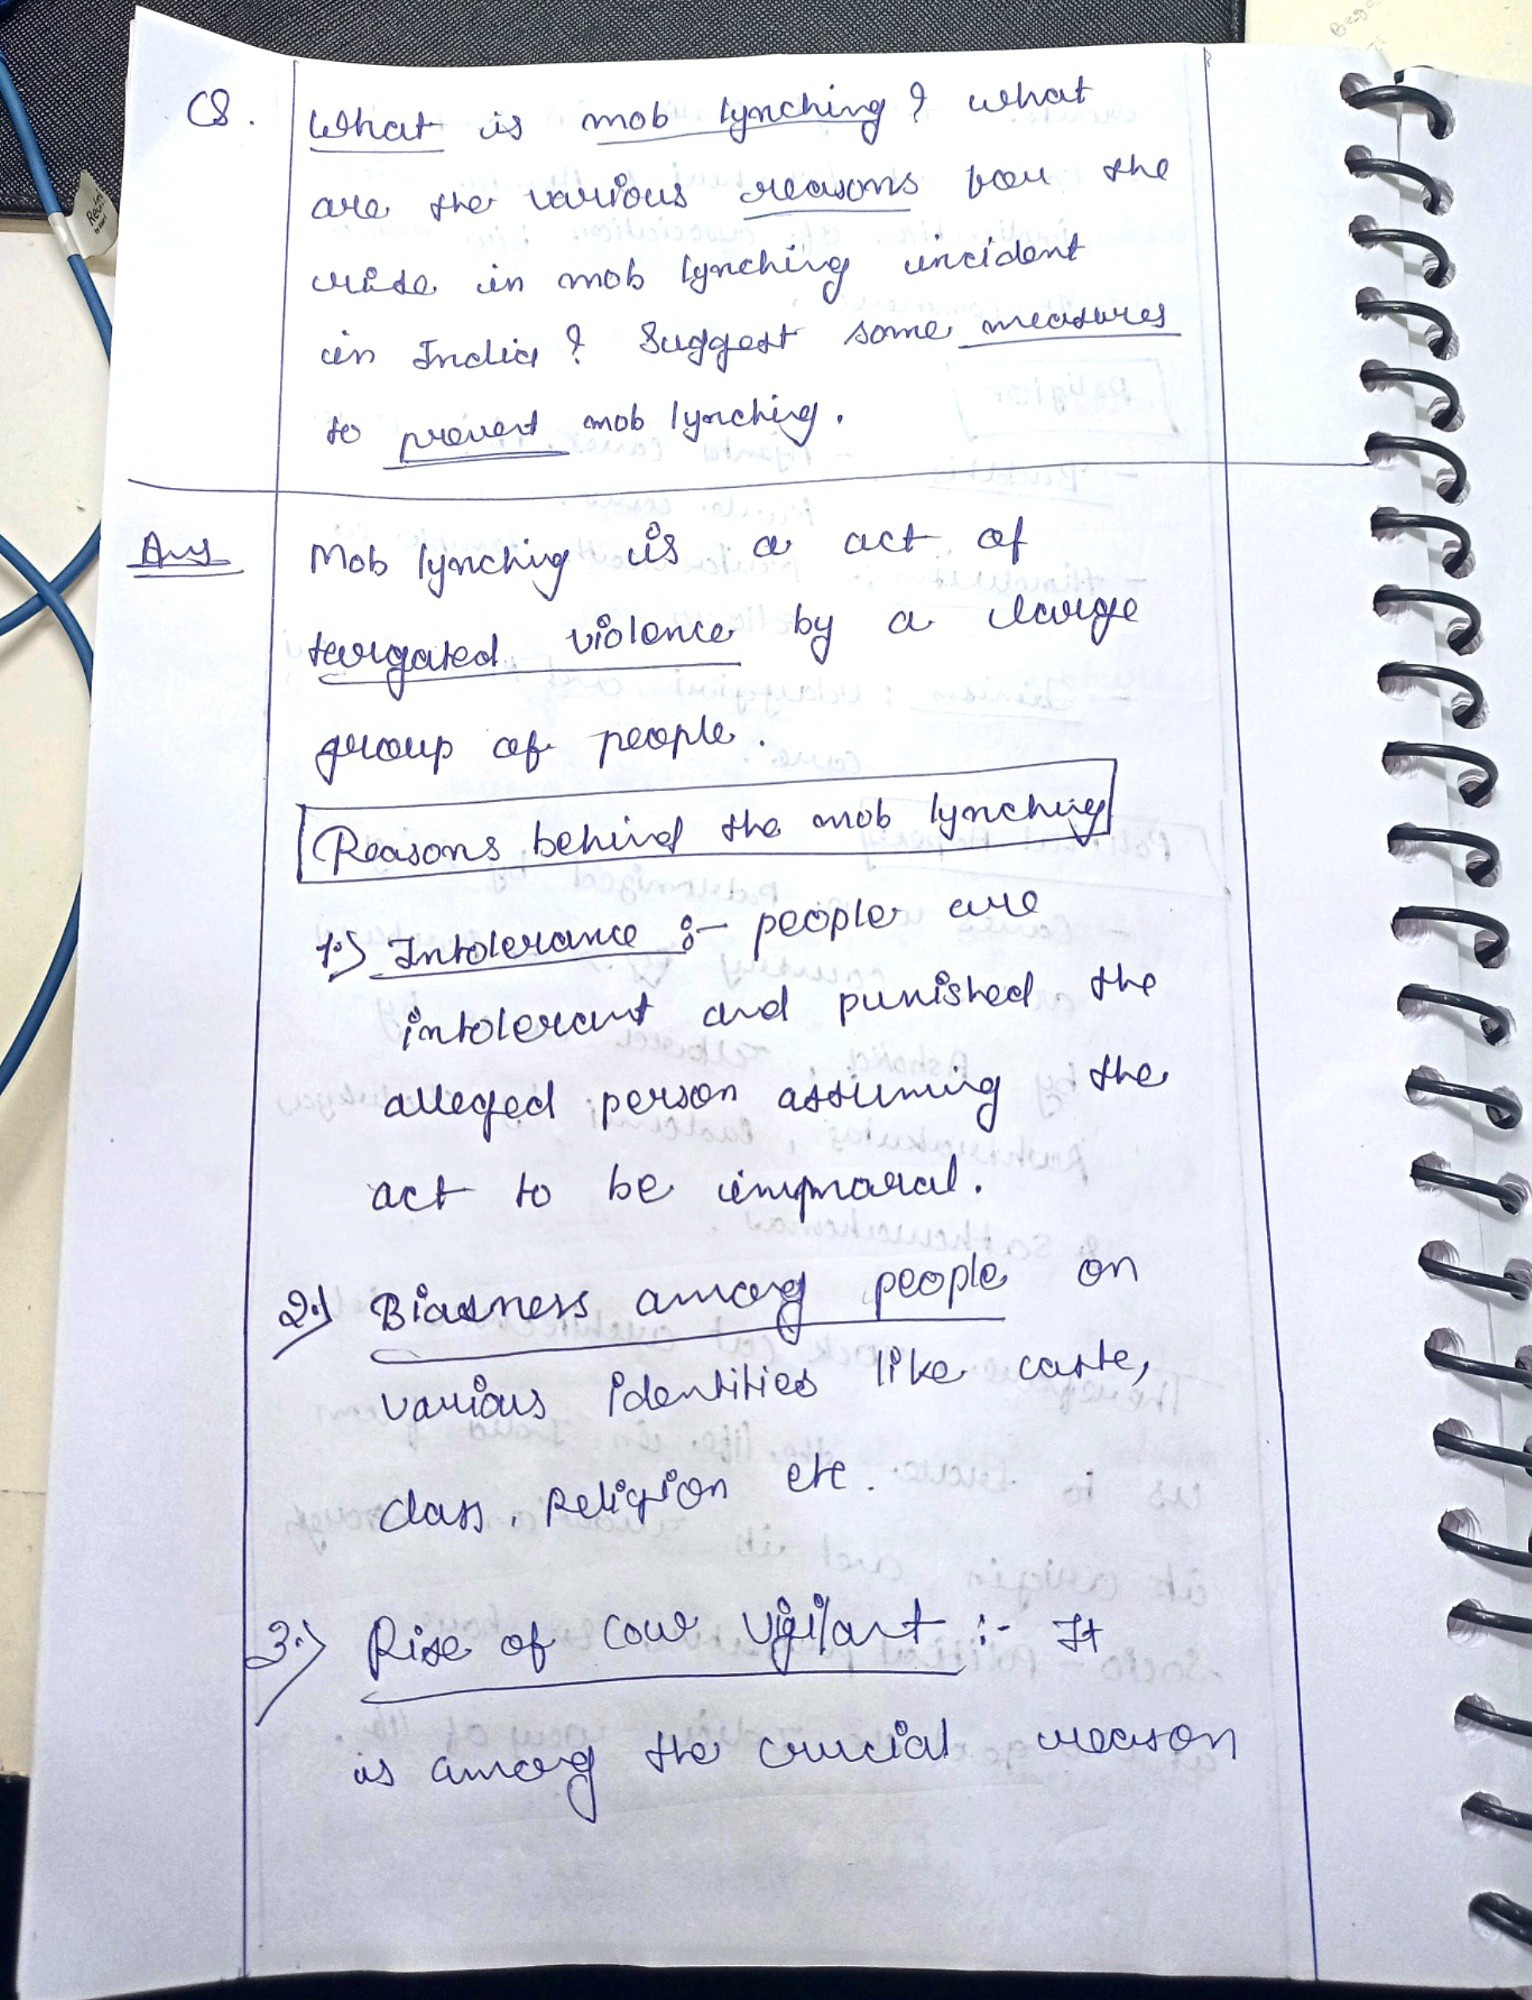 Q.
What is mob lynching? what
are the various reasons for the
rise in mob lynching incident
in India? Suggest some measures
to prevent mob lynching.
Ans
Mob lynching is a act of
targated violence by a large
group of people.
Reasons behind the mob lynching
1.) Intolerance :- people are
intolerant and punished the
alleged person assuming the
act to be immoral.
2.) Biasness among people on
various identities like caste,
class, Religion etc.
3.) Rise of cow vigilant :- It
is among the crucial reason